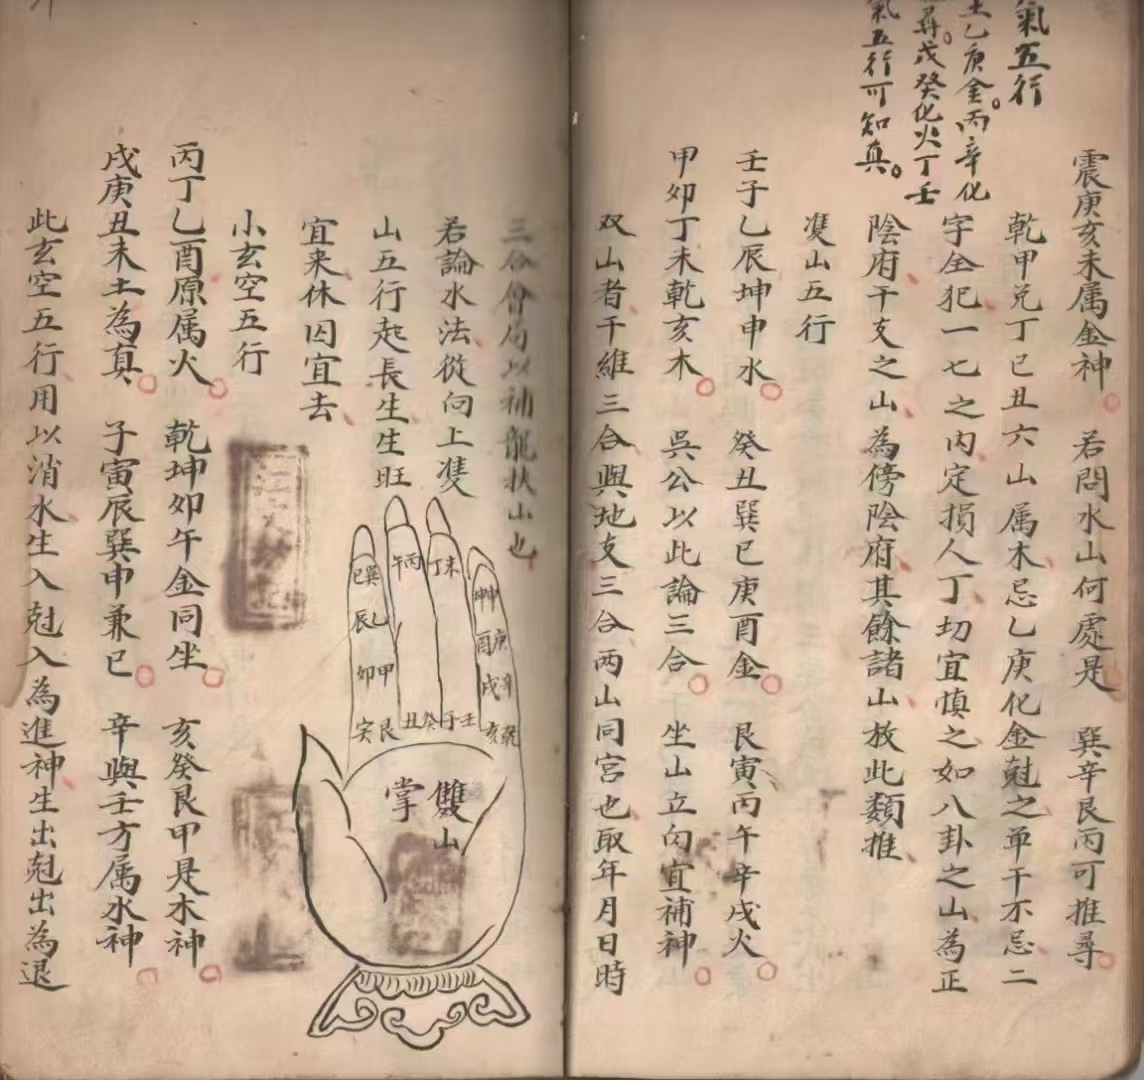 氣五行
土乙庚金丙辛化
尋戊癸化火丁壬
氣五行可知真
震庚亥未属金神 若問水山何處是 巽辛艮丙可推尋
乾甲兑丁巳丑六山属木忌乙庚化金尅之单干不忌二
字全犯一七之内定損人丁切宜慎之如八卦之山為正
陰府干支之山為傍陰府其餘諸山放此類推
隻山五行
壬子乙辰坤申水 癸丑巽巳庚酉金 艮寅丙午辛戌火
甲卯丁未乾亥木 吳公以此論三合 坐山立向宜補神
双山者干維三合與地支三合两山同宮也取年月日時
三合會局以補龍扶山也
若論水法從向上隻
山五行起長生生旺
宜来休囚宜去
坤申
庚酉
辛戌
乾亥
未丁
丙午
巽巳
乙辰
甲卯
艮寅
壬子癸丑
雙山
掌
小玄空五行
丙丁乙酉原属火 乾坤卯午金同坐 亥癸艮甲是木神
戌庚丑未土為真 子寅辰巽申兼巳 辛與壬方属水神
此玄空五行用以消水生入尅入為進神生出尅出為退